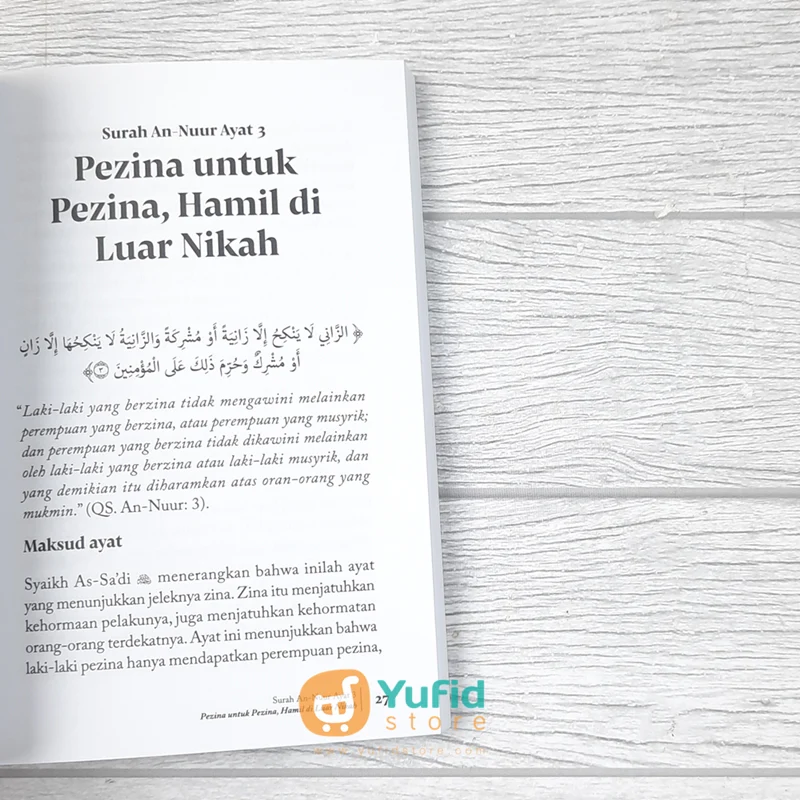 Surah An-Nuur Ayat 3
Pezina untuk
Pezina, Hamil di
Luar Nikah
﴿ الزَّانِي لَا يَنْكِحُ إِلَّا زَانِيَةً أَوْ مُشْرِكَةً وَالزَّانِيَةُ لَا يَنْكِحُهَا إِلَّا زَانٍ
أَوْ مُشْرِكٌ وَحُرِّمَ ذَلِكَ عَلَى الْمُؤْمِنِينَ ٣ ﴾
“Laki-laki yang berzina tidak mengawini melainkan
perempuan yang berzina, atau perempuan yang musyrik;
dan perempuan yang berzina tidak dikawini melainkan
oleh laki-laki yang berzina atau laki-laki musyrik, dan
yang demikian itu diharamkan atas oran-orang yang
mukmin.” (QS. An-Nuur: 3).
Maksud ayat
Syaikh As-Sa’di menerangkan bahwa inilah ayat
yang menunjukkan jeleknya zina. Zina itu menjatuhkan
kehormaan pelakunya, juga menjatuhkan kehormatan
orang-orang terdekatnya. Ayat ini menunjukkan bahwa
laki-laki pezina hanya mendapatkan perempuan pezina,
Surah An-Nuur Ayat 3
Pezina untuk Pezina, Hamil di Luar Nikah
27
Yufid
store
www.yufidstore.com